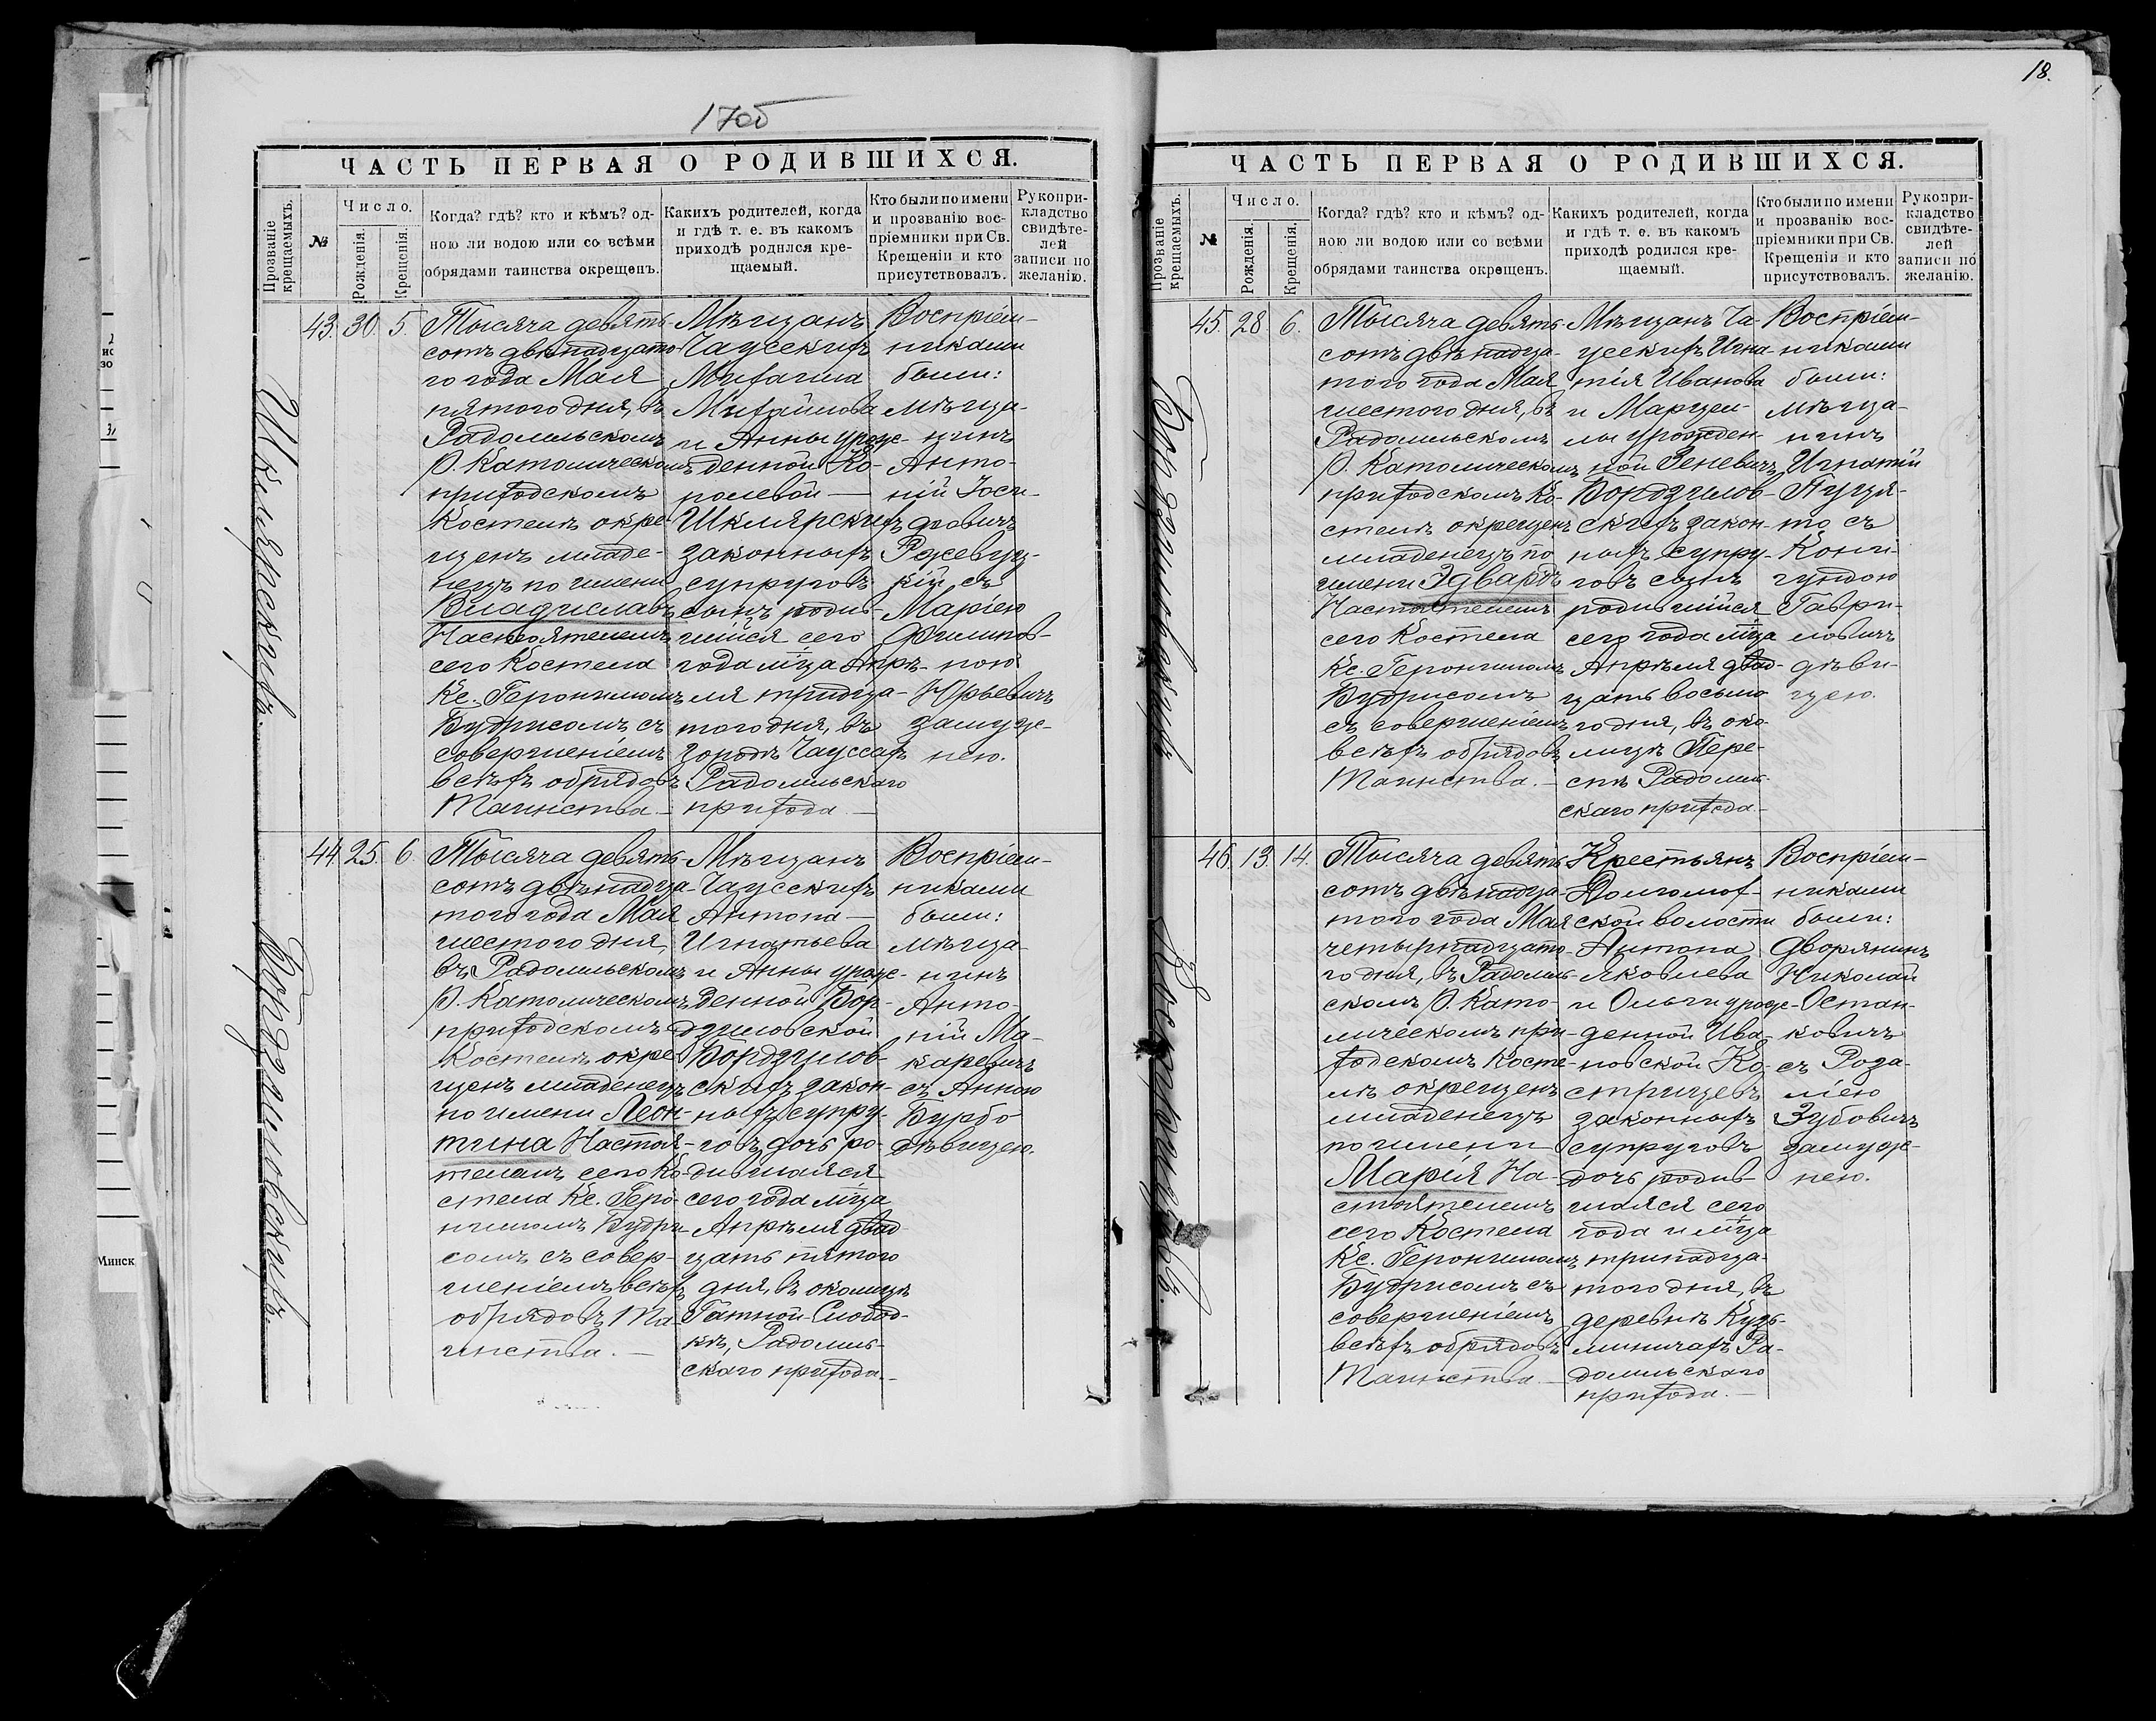 18.
170б
ЧАСТЬ ПЕРВАЯ О РОДИВШИХСЯ.
Прозваніе крещаемыхъ.
№
Число.
Рожденія.
Крещенія.
Когда? гдѣ? кто и кѣмъ? од-
ною ли водою или со всѣми
обрядами таинства окрещенъ.
Какихъ родителей, когда
и гдѣ т. е. въ какомъ
приходѣ родился кре-
щаемый.
Кто были по имени
и прозванію вос-
пріемники при Св.
Крещеніи и кто
присутствовалъ.
Рукопри-
кладство
свидѣте-
лей
записи по
желанію.
Шклярскихъ.
43. 30. 5.
Тысяча девять-
сотъ двѣнадцато-
го года Мая
пятого дня, въ
Радомльскомъ
Р. Католическомъ
приходскомъ
Костелѣ окре-
щенъ младе-
нецъ по имени
Владиславъ
Настоятелемъ
сего Костела
Кс. Геронимомъ
Будрисомъ съ
совершеніемъ
всѣхъ обрядовъ
Таинства.—
Мѣщанъ
Чаусскихъ
Михаила
Михайлова
и Анны урож-
денной Ко-
ролевой —
Шклярскихъ
законныхъ
супруговъ
сынъ родив-
шійся сего
года м͞ца Апрѣ-
ля тридца-
того дня, въ
городѣ Чауссахъ
Радомльскаго
прихода.—
Воспріем-
никами
были:
мѣща-
нинъ
Анто-
ній Іоси-
фовичъ
Ржевуц-
кій съ
Маріею
Филипов-
ною
Юрьевичъ
замуж-
нею.
Бордзиловскихъ.
44. 25. 6.
Тысяча девять-
сотъ двѣнадца-
того года Мая
шестого дня,
въ Радомльскомъ
Р. Католическомъ
приходскомъ
Костелѣ окре-
щенъ младенецъ
по имени Леон-
тина Настоя-
телемъ сего Ко-
стела Кс. Геро-
нимомъ Будри-
сомъ съ совер-
шеніемъ всѣхъ
обрядовъ Та-
инства.—
Мѣщанъ
Чаусскихъ
Антона —
Игнатьева
и Анны урож-
денной Бор-
дзиловской
Бордзилов-
скихъ закон-
ныхъ супру-
говъ дочь ро-
дившаяся
сего года м͞ца
Апрѣля двад-
цать пятого
дня, въ околицѣ
Гатной-Слобод-
кѣ, Радомль-
скаго прихода.—
Воспріем-
никами
были:
мѣща-
нинъ
Анто-
ній Ма-
каревичъ
съ Анною
Бурбо
дѣвицею.
ЧАСТЬ ПЕРВАЯ О РОДИВШИХСЯ.
Прозваніе крещаемыхъ.
№
Число.
Рожденія.
Крещенія.
Когда? гдѣ? кто и кѣмъ? од-
ною ли водою или со всѣми
обрядами таинства окрещенъ.
Какихъ родителей, когда
и гдѣ т. е. въ какомъ
приходѣ родился кре-
щаемый.
Кто были по имени
и прозванію вос-
пріемники при Св.
Крещеніи и кто
присутствовалъ.
Рукопри-
кладство
свидѣте-
лей
записи по
желанію.
Бордзиловскихъ
45. 28. 6.
Тысяча девять-
сотъ двѣнадца-
того года Мая
шестого дня, въ
Радомльскомъ
Р. Католическомъ
приходскомъ Ко-
стелѣ окрещенъ
младенецъ по
имени Эдвардъ
Настоятелемъ
сего Костела
Кс. Геронимомъ
Будрисомъ
съ совершеніемъ
всѣхъ обрядовъ
Таинства.—
Мѣщанъ Ча-
усскихъ Игна-
тія Иванова
и Марцел-
лы урожден-
ной Зеневичъ
Бордзилов-
скихъ закон-
ныхъ супру-
говъ сынъ
родившійся
сего года м͞ца
Апрѣля двад-
цать восьмо-
го дня, въ око-
лицѣ Пере-
скаго прихода.—
Воспріем-
никами
были:
мѣща-
нинъ
Игнатій
то съ
Кони-
гундою
Гаври-
ловичъ
дѣви-
цею.
Костріцевъ.
46. 13. 14.
Тысяча девять-
сотъ двѣнадца-
того года Мая
четырнадцато-
го дня, въ Радомль-
скомъ Р. Като-
лическомъ при-
ходскомъ Косте-
лѣ окрещенъ
младенецъ
по имени
Марія На-
стоятелемъ
сего Костела
Кс. Геронимомъ
Будрисомъ съ
совершеніемъ
всѣхъ обрядовъ
Таинства.—
Крестьянъ
Долгомох-
ской волости
Антона
Яковлева
и Ольги урож-
денной Ива-
новской Ко-
стрицевъ
законныхъ
супруговъ
дочь родив-
шаяся сего
года и м͞ца
тринадца-
того дня, въ
деревнѣ Кузь-
миничахъ Ра-
домльскаго
прихода.—
Воспріем-
никами
были:
дворянинъ
Николай
Остан-
ковичъ
съ Роза-
ліею
Зубовичъ
замуж-
нею.
Минск